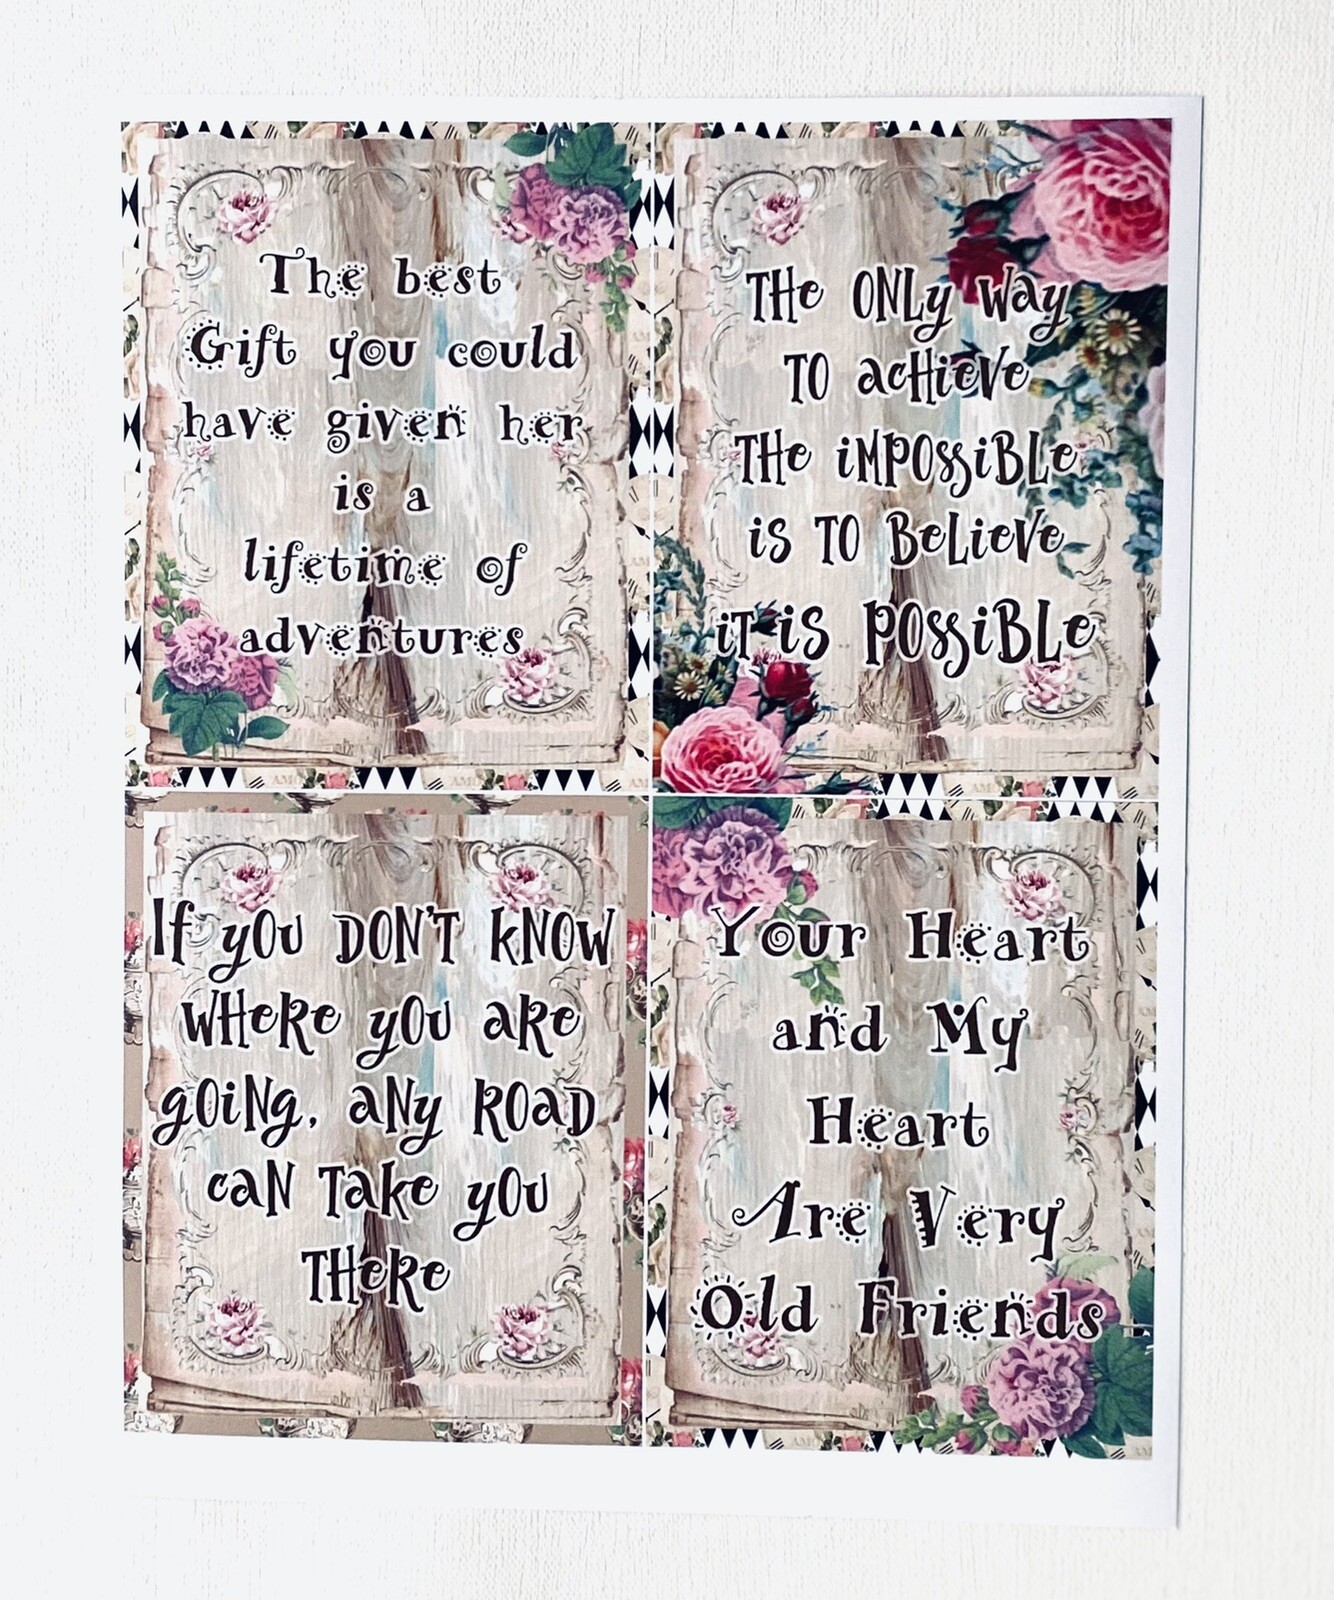 The best
Gift you could
have given her
is a
lifetime of
adventures
THe ONLy way
TO acHieVe
THe iMPOSSiBLe
iS TO BeLieVe
iT iS POSSiBLe
If yOU DON'T kNOW
WHeRe yOU aRe
gOiNg, aNy ROaD
caN Take yOU
THeRe
Your Heart
and My
Heart
Are Very
Old Friends